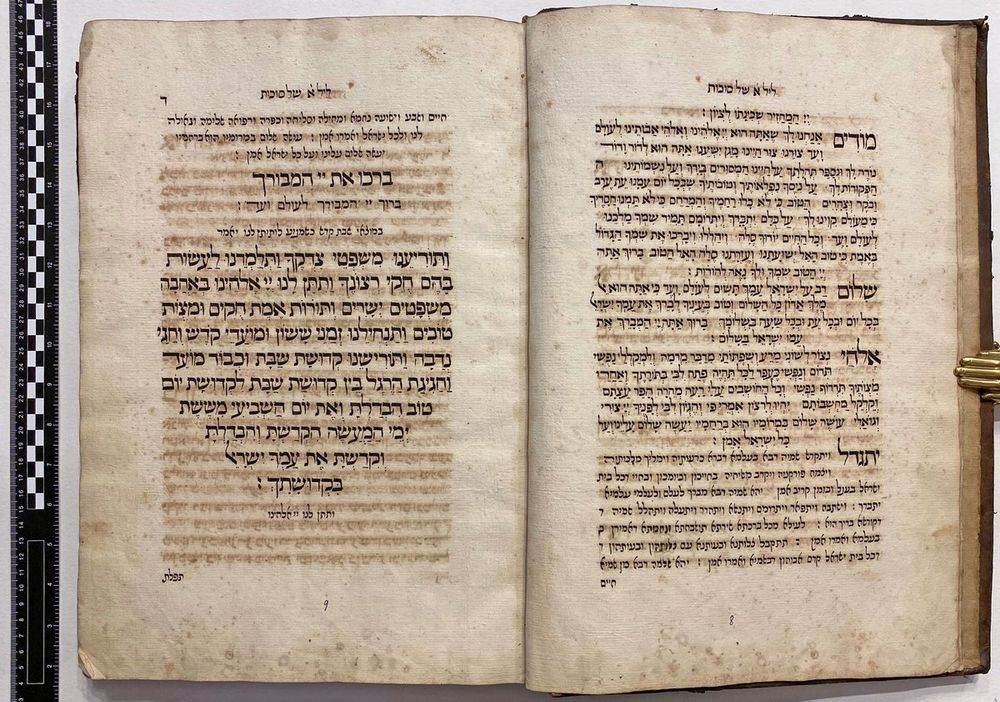 ליל א׳ של סוכות
יי׳ המחזיר שכינתו לציון :
מודים אנחנו לך שאתה הוא יי׳ אלהינו ואלהי אבותינו לעולם
ועד צורנו צור חיינו מגן ישענו אתה הוא לדור ודור
נודה לך ונספר תהלתך על חיינו המסורים בידך ועל נשמותינו
הפקודות לך על ניסך נפלאותיך וטובותיך שבכל יום עמנו עת ערב
ובקר וצהרים הטוב כי לא כלו רחמיך והמרחם כי לא תמנו חסדיך
כי מעולם קוינו לך על כלם יתברך ויתרומם תמיד שמך מלכנו
לעולם ועד וכל החיים יודוך סלה ויהללו ויברכו את שמך הגדול
באמת כי טוב האל ישועתנו ועזרתנו סלה האל הטוב ברוך אתה
יי׳ הטוב שמך ולך נאה להודות :
שלום רב על ישראל עמך תשים לעולם ועד כי אתה הוא
מלך אדון כל השלום וטוב בעיניך לברך את עמך ישראל
בכל יום ובכל עת ובכל שעה בשלומך ברוך אתה יי׳ המברך את
עמו ישראל בשלום :
אלהי נצור לשוני מרע ושפתותי מדבר מרמה ולמקללי נפשי
תדום ונפשי כעפר לכל תהיה פתח לבי בתורתך ואחרי
מצותיך תרדוף נפשי וכל החושבים עלי רעה מהרה הפר עצתם
וקלקל מחשבותם יהיו לרצון אמרי פי והגיון לבי לפניך יי׳ צורי
וגואלי עושה שלום במרומיו הוא ברחמיו יעשה שלום עלינו ועל
כל ישראל אמן :
יתגדל ויתקדש שמיה רבא בעלמא דברא כרעותיה וימליך מלכותיה
ויצמח פורקניה ויקרב משיחיה בחייכון וביומיכון ובחיי דכל בית
ישראל בעגלא ובזמן קריב אמן יהא שמיה רבא מברך לעלם ולעלמי עלמיא
יתברך : וישתבח ויתפאר ויתרומם ויתנשא ויתהדר ויתעלה ויתהלל שמיה ד
דקודשא בריך הוא : לעילא מכל ברכתא שירתא תושבחתא ונחמתא דאמירן ב
בעלמא ואמרו אמן : תתקבל צלותנא ובעותנא עם צלותהון ובעותהון ד
דכל בית ישראל קדם אבוהון דבשמיא ואמרו אמן : יהא שלמה רבא מן שמיא
חיים
8
ליל א׳ של סוכות
ד
חיים ושבע וישועה נחמא ומחילה וסליחה וכפרה ורפואה שלימה וגאולה
לנו ולכל ישראל ואמרו אמן : עושה שלום במרומיו הוא ברחמיו
יעשה שלום עלינו ועל כל ישראל אמן :
ברכו את יי׳ המבורך
ברוך יי׳ המבורך לעולם ועד :
במוצאי שבת קדש
ותודיענו משפטי צדקך ותלמדנו לעשות
בהם חקי רצונך ותתן לנו יי׳ אלהינו באהבה
משפטים ישרים ותורות אמת חקים ומצות
טובים ותנחילנו זמני ששון ומועדי קדש וחגי
נדבה ותורישנו קדושת שבת וכבוד מועד
וחגיגת הרגל בין קדושת שבת לקדושת יום
טוב הבדלת ואת יום השביעי מששת
ימי המעשה הקדשת והבדלת
וקדשת את עמך ישראל
בקדושתך :
ותתן לנו יי׳ אלהינו
תפלת
9